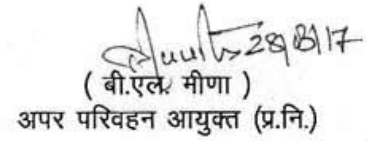 28/8/17
( बी.एल. मीणा )
अपर परिवहन आयुक्त (प्र.नि.)